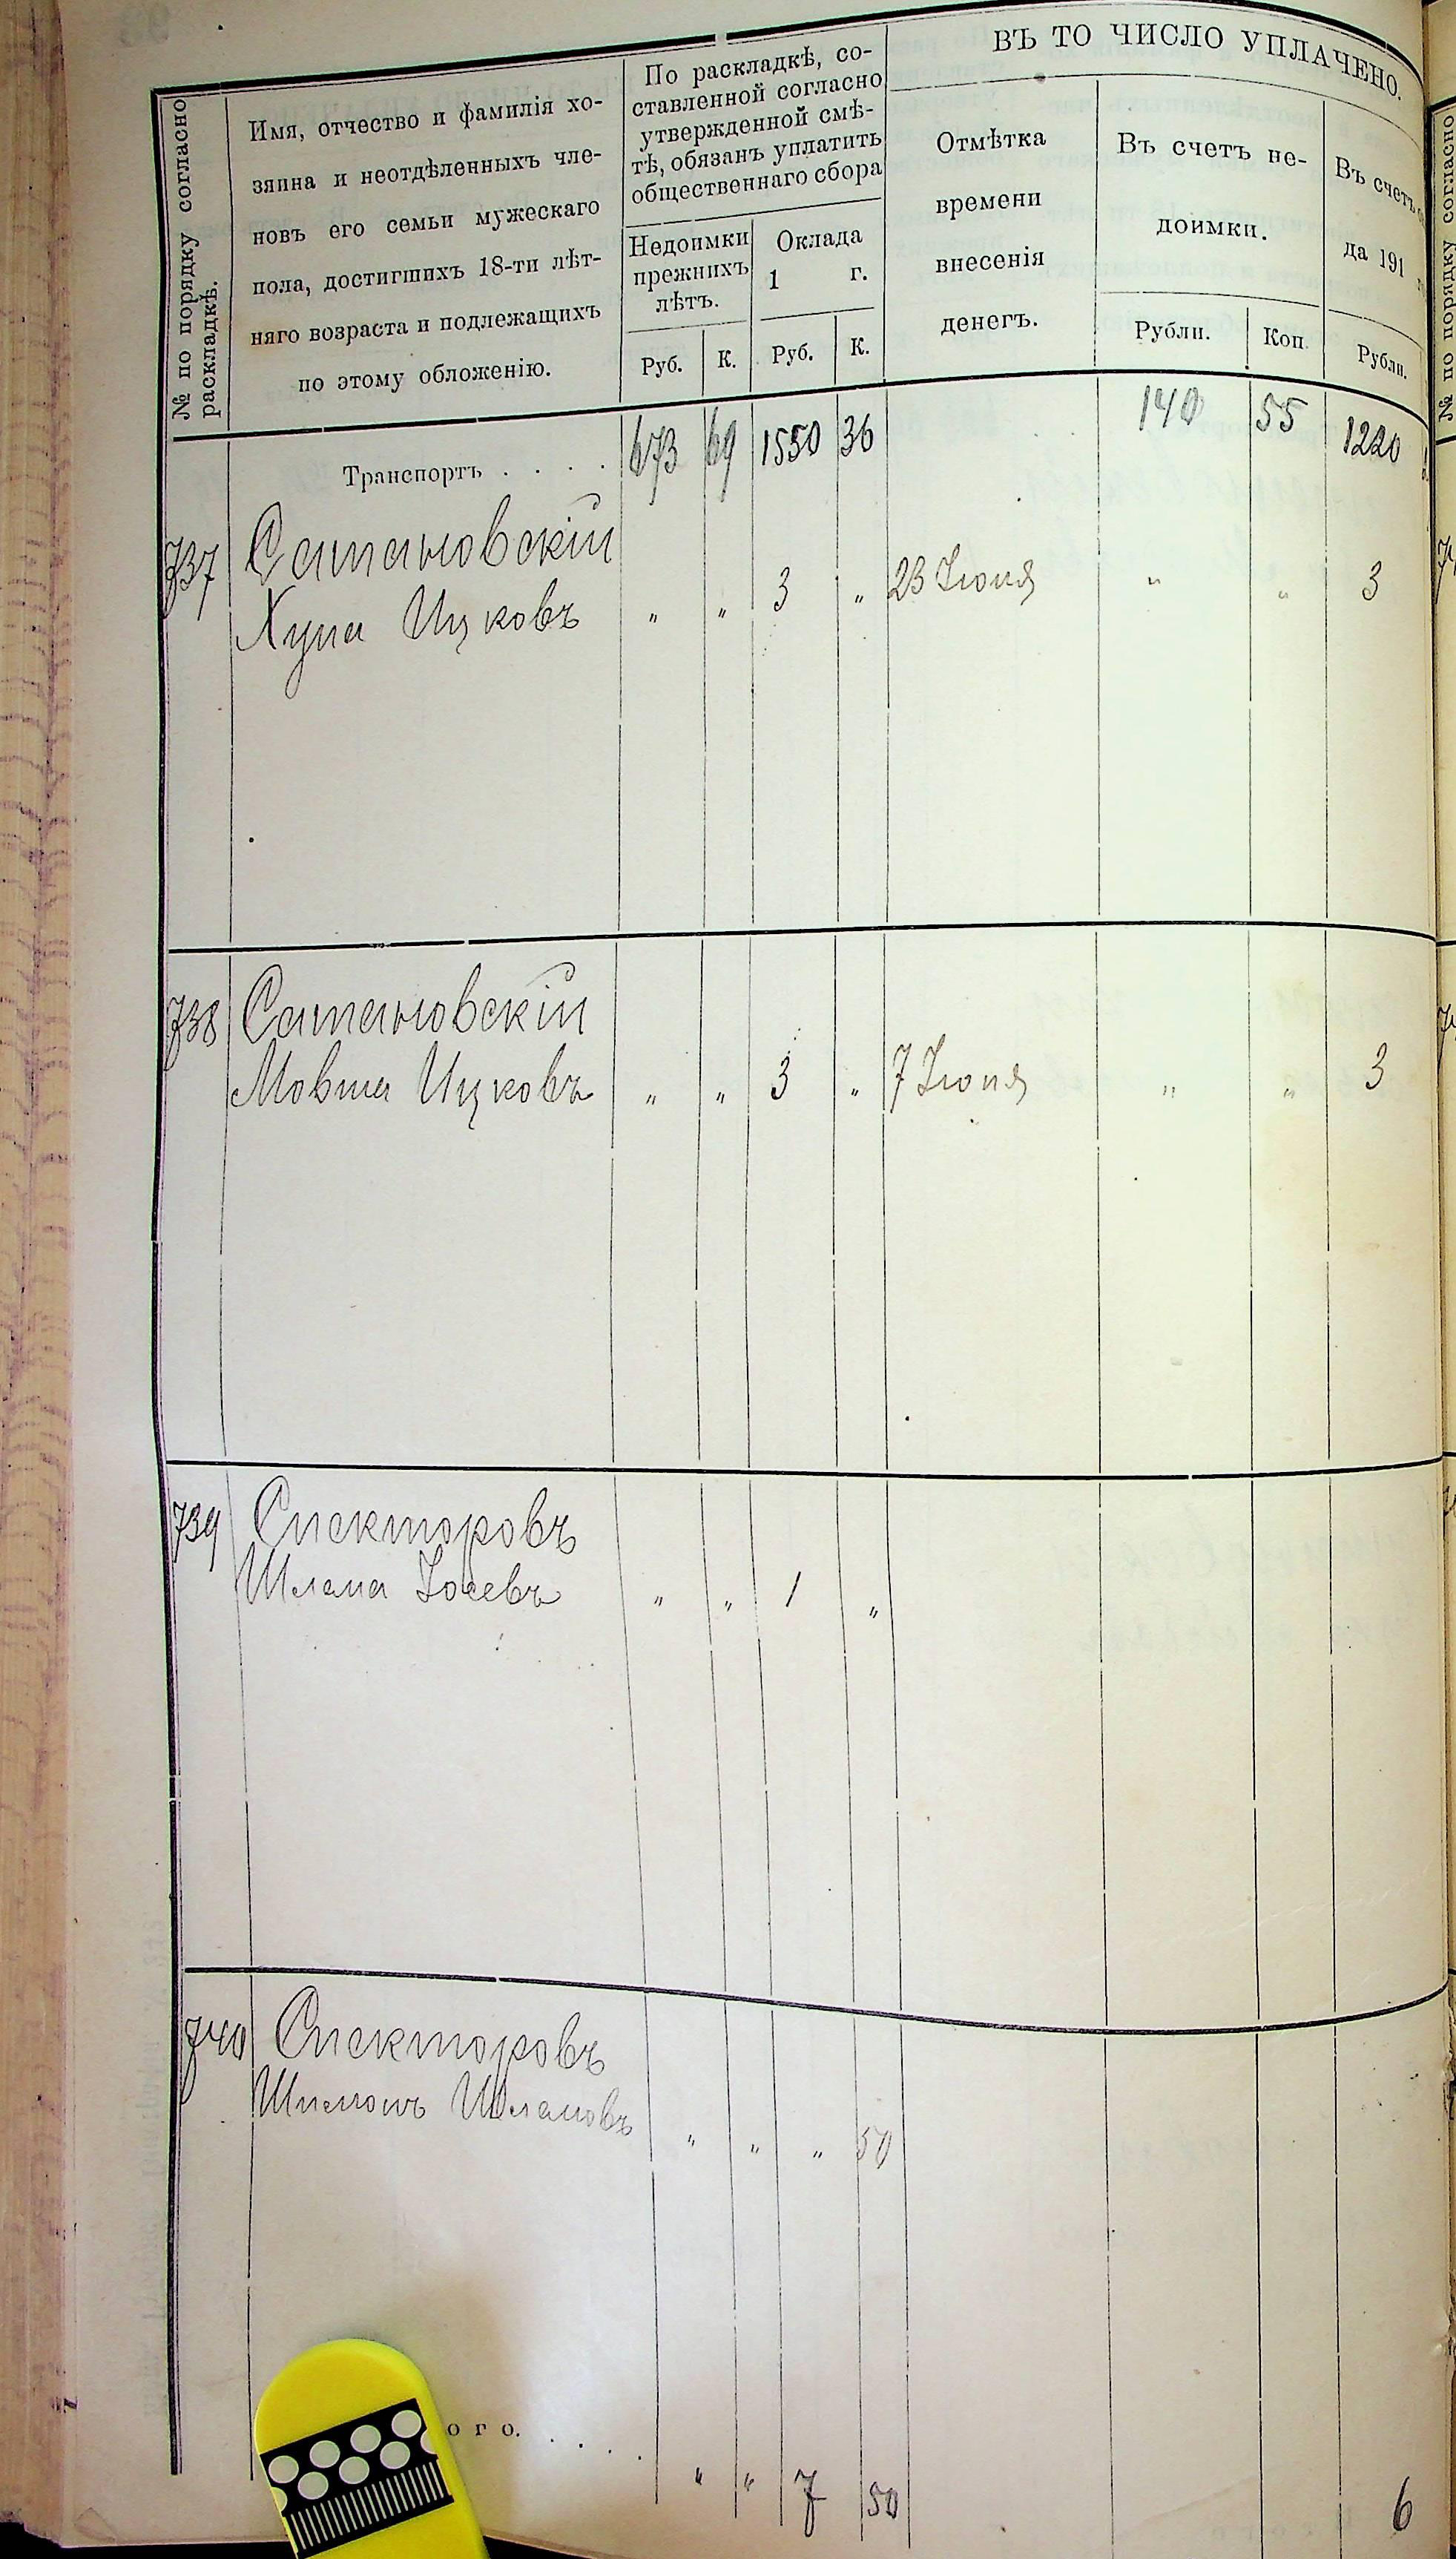 ВЪ ТО ЧИСЛО УПЛАЧЕНО.
№ по порядку согласно
раскладкѣ.
Имя, отчество и фамилія хо-
зяина и неотдѣленныхъ чле-
новъ его семьи мужескаго
пола, достигшихъ 18-ти лѣт-
няго возраста и подлежащихъ
по этому обложенію.
По раскладкѣ, со-
ставленной согласно
утвержденной смѣ-
тѣ, обязанъ уплатить
общественнаго сбора
Недоимки
прежнихъ
лѣтъ.
Оклада
1 г.
Руб. К. Руб. К.
Отмѣтка
времени
внесенія
денегъ.
Въ счетъ не-
доимки.
Рубли. Коп.
Въ счетъ
да 191
Рубли.
№ по порядку согласно
Транспортъ . . . . 673 69 1550 36 140 55 1220
737 Сатановскій
Хуна Ицковъ " " 3 " 23 Іюня " " 3
738 Сатановскій
Мовша Ицковъ " " 3 " 7 Іюня " " 3
739 Спекторовъ
Шлема Іосевъ " " 1 "
740 Спекторовъ
Шимонъ Шлемовъ " " " 50
ого. . . . . " " 7 50 6